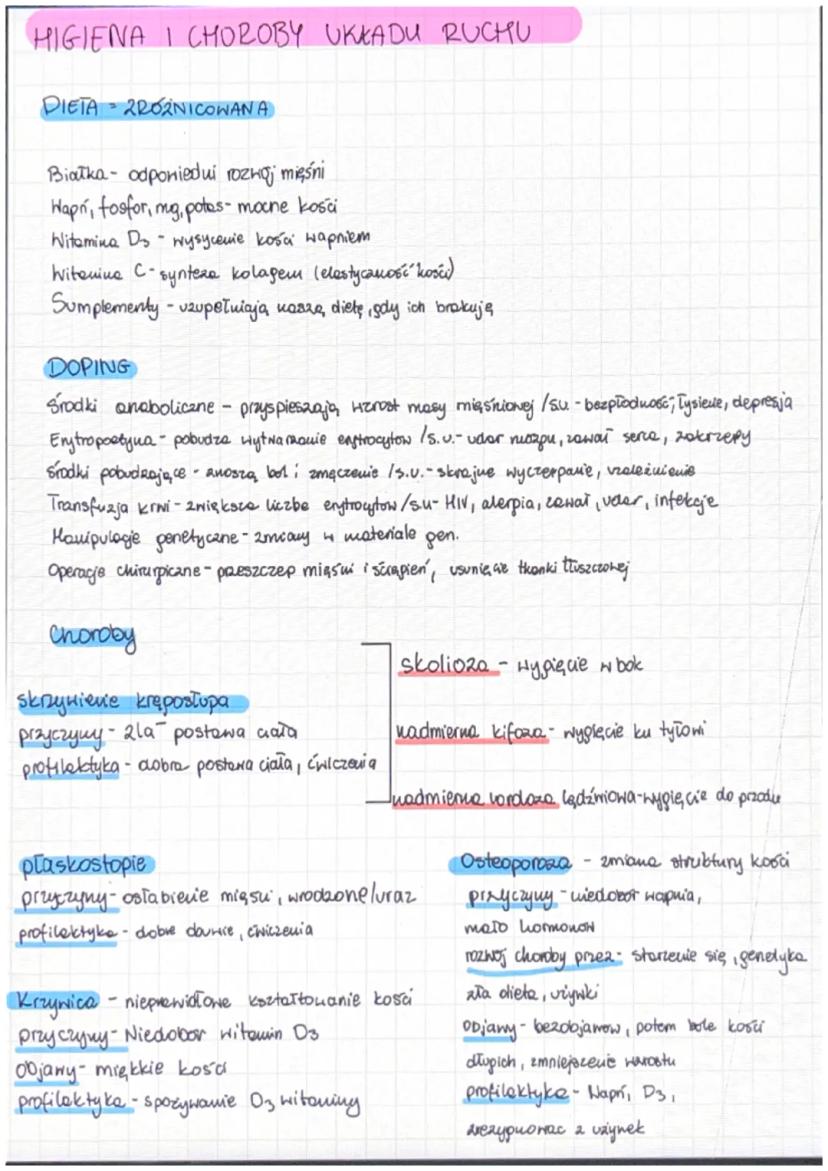 HIGIENA I CHOROBY UKŁADU RUCHU
DIETA = ZRÓŻNICOWANA
Białka - odpowiedni rozwój mięśni
Wapń, fosfor, mg, potas - mocne kości
Witamina D3 - wysycenie kości wapniem
Witamina C - synteza kolagenu (elastyczność kości)
Sumplementy - uzupełniają naszą dietę, gdy ich brakują
DOPING
środki anaboliczne - przyspieszają wzrost masy mięśniowej /s.u - bezpłodność, łysienie, depresja
Erytropoetyna - pobudza wytwarzanie erytrocytów /s.u. - udar mózgu, zawał serca, zakrzepy
środki pobudzające - znoszą ból i zmęczenie /s.u. - skrajne wyczerpanie, uzależnienie
Transfuzja krwi - zwiększa liczbę erytrocytów /s.u - HIV, alergia, zawał, udar, infekcje
Manipulacje genetyczne - zmiany w materiale gen.
Operacje chirurgiczne - przeszczep mięśni i ścięgien, usunięcie tkanki tłuszczowej
Choroby
skrzywienie kręgosłupa
przyczyny - zła postawa ciała
profilaktyka - dobra postawa ciała, ćwiczenia
skolioza - wygięcie w bok
nadmierna kifoza - wygięcie ku tyłowi
nadmierna lordoza lędźwiowa - wygięcie do przodu
płaskostopie
przyczyny - osłabienie mięśni, wrodzone/uraz
profilaktyka - dobre obuwie, ćwiczenia
Krzywica - nieprawidłowe kształtowanie kości
przyczyny - Niedobór witamin D3
objawy - miękkie kości
profilaktyka - spożywanie D3 witaminy
Osteoporoza - zmiana struktury kości
przyczyny - niedobór wapnia,
mało hormonów
rozwój choroby przez - starzenie się, genetyka
zła dieta, używki
objawy - bezobjawow, potem bóle kości
długich, zmniejszenie wzrostu
profilaktyka - Wapń, D3,
zrezygnować z używek